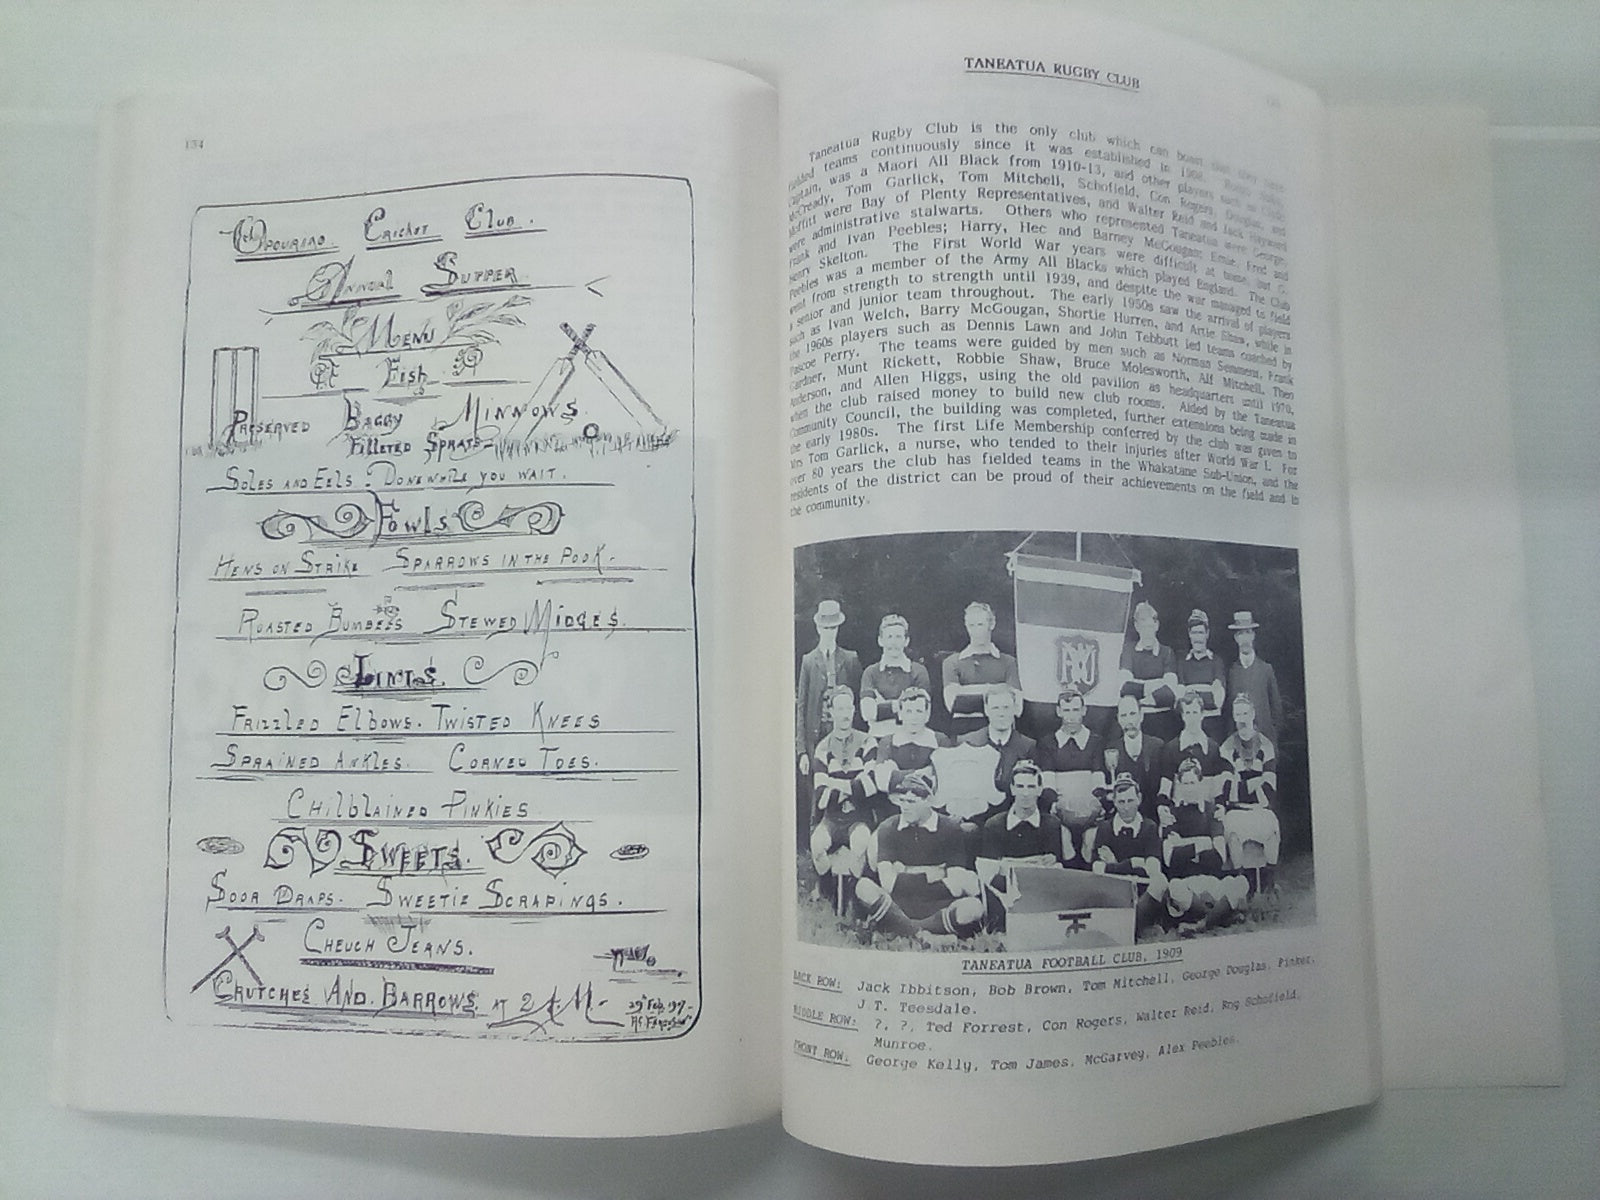 134
Opouriao Cricket Club.
Annual Supper
Menu
Fish
Preserved Baggy Minnows.
Filleted Sprats
Soles and Eels: Done while you wait.
Fowls
Hens on Strike Sparrows in the Pook.
Roasted Bumbees Stewed Midges.
Jints.
Frizzled Elbows. Twisted Knees
Sprained Ankles. Corned Toes.
Chilblained Pinkies
Sweets.
Soor Draps. Sweetie Scrapings.
Cheuch Jeans.
Crutches And Barrows at 2 A.M.
29th Feb.
TANEATUA RUGBY CLUB
Taneatua Rugby Club is the only club which can boast that they have
fielded teams continuously since it was established in 1908.
Captain, was a Maori All Black from 1910-13, and other players such as
McCready, Tom Garlick, Tom Mitchell, Schofield, Con Rogers, Douglas, and
Moffitt were Bay of Plenty Representatives, and Walter Reid and Jack Hayward
were administrative stalwarts. Others who represented Taneatua were George,
Frank and Ivan Peebles; Harry, Hec and Barney McGougan; Ernie, Fred and
Henry Skelton. The First World War years were difficult at home, but G.
Peebles was a member of the Army All Blacks which played England. The Club
went from strength to strength until 1939, and despite the war managed to field
a senior and junior team throughout. The early 1950s saw the arrival of players
such as Ivan Welch, Barry McGougan, Shortie Hurren, and Artie Shaw, while in
the 1960s players such as Dennis Lawn and John Tebbutt led teams coached by
Pascoe Perry. The teams were guided by men such as Norman Semmens, Frank
Gardner, Munt Rickett, Robbie Shaw, Bruce Molesworth, Alf Mitchell, Theo
Anderson, and Allen Higgs, using the old pavilion as headquarters until 1970,
when the club raised money to build new club rooms. Aided by the Taneatua
Community Council, the building was completed, further extensions being made in
the early 1980s. The first Life Membership conferred by the club was given to
Mrs Tom Garlick, a nurse, who tended to their injuries after World War I. For
over 80 years the club has fielded teams in the Whakatane Sub-Union, and the
residents of the district can be proud of their achievements on the field and in
the community.
TANEATUA FOOTBALL CLUB, 1909
BACK ROW: Jack Ibbitson, Bob Brown, Tom Mitchell, George Douglas, Pinker,
J.T. Teesdale.
MIDDLE ROW: ?, ?, Ted Forrest, Con Rogers, Walter Reid, Rng Schofield,
Munroe.
FRONT ROW: George Kelly, Tom James, McGarvey, Alex Peebles.